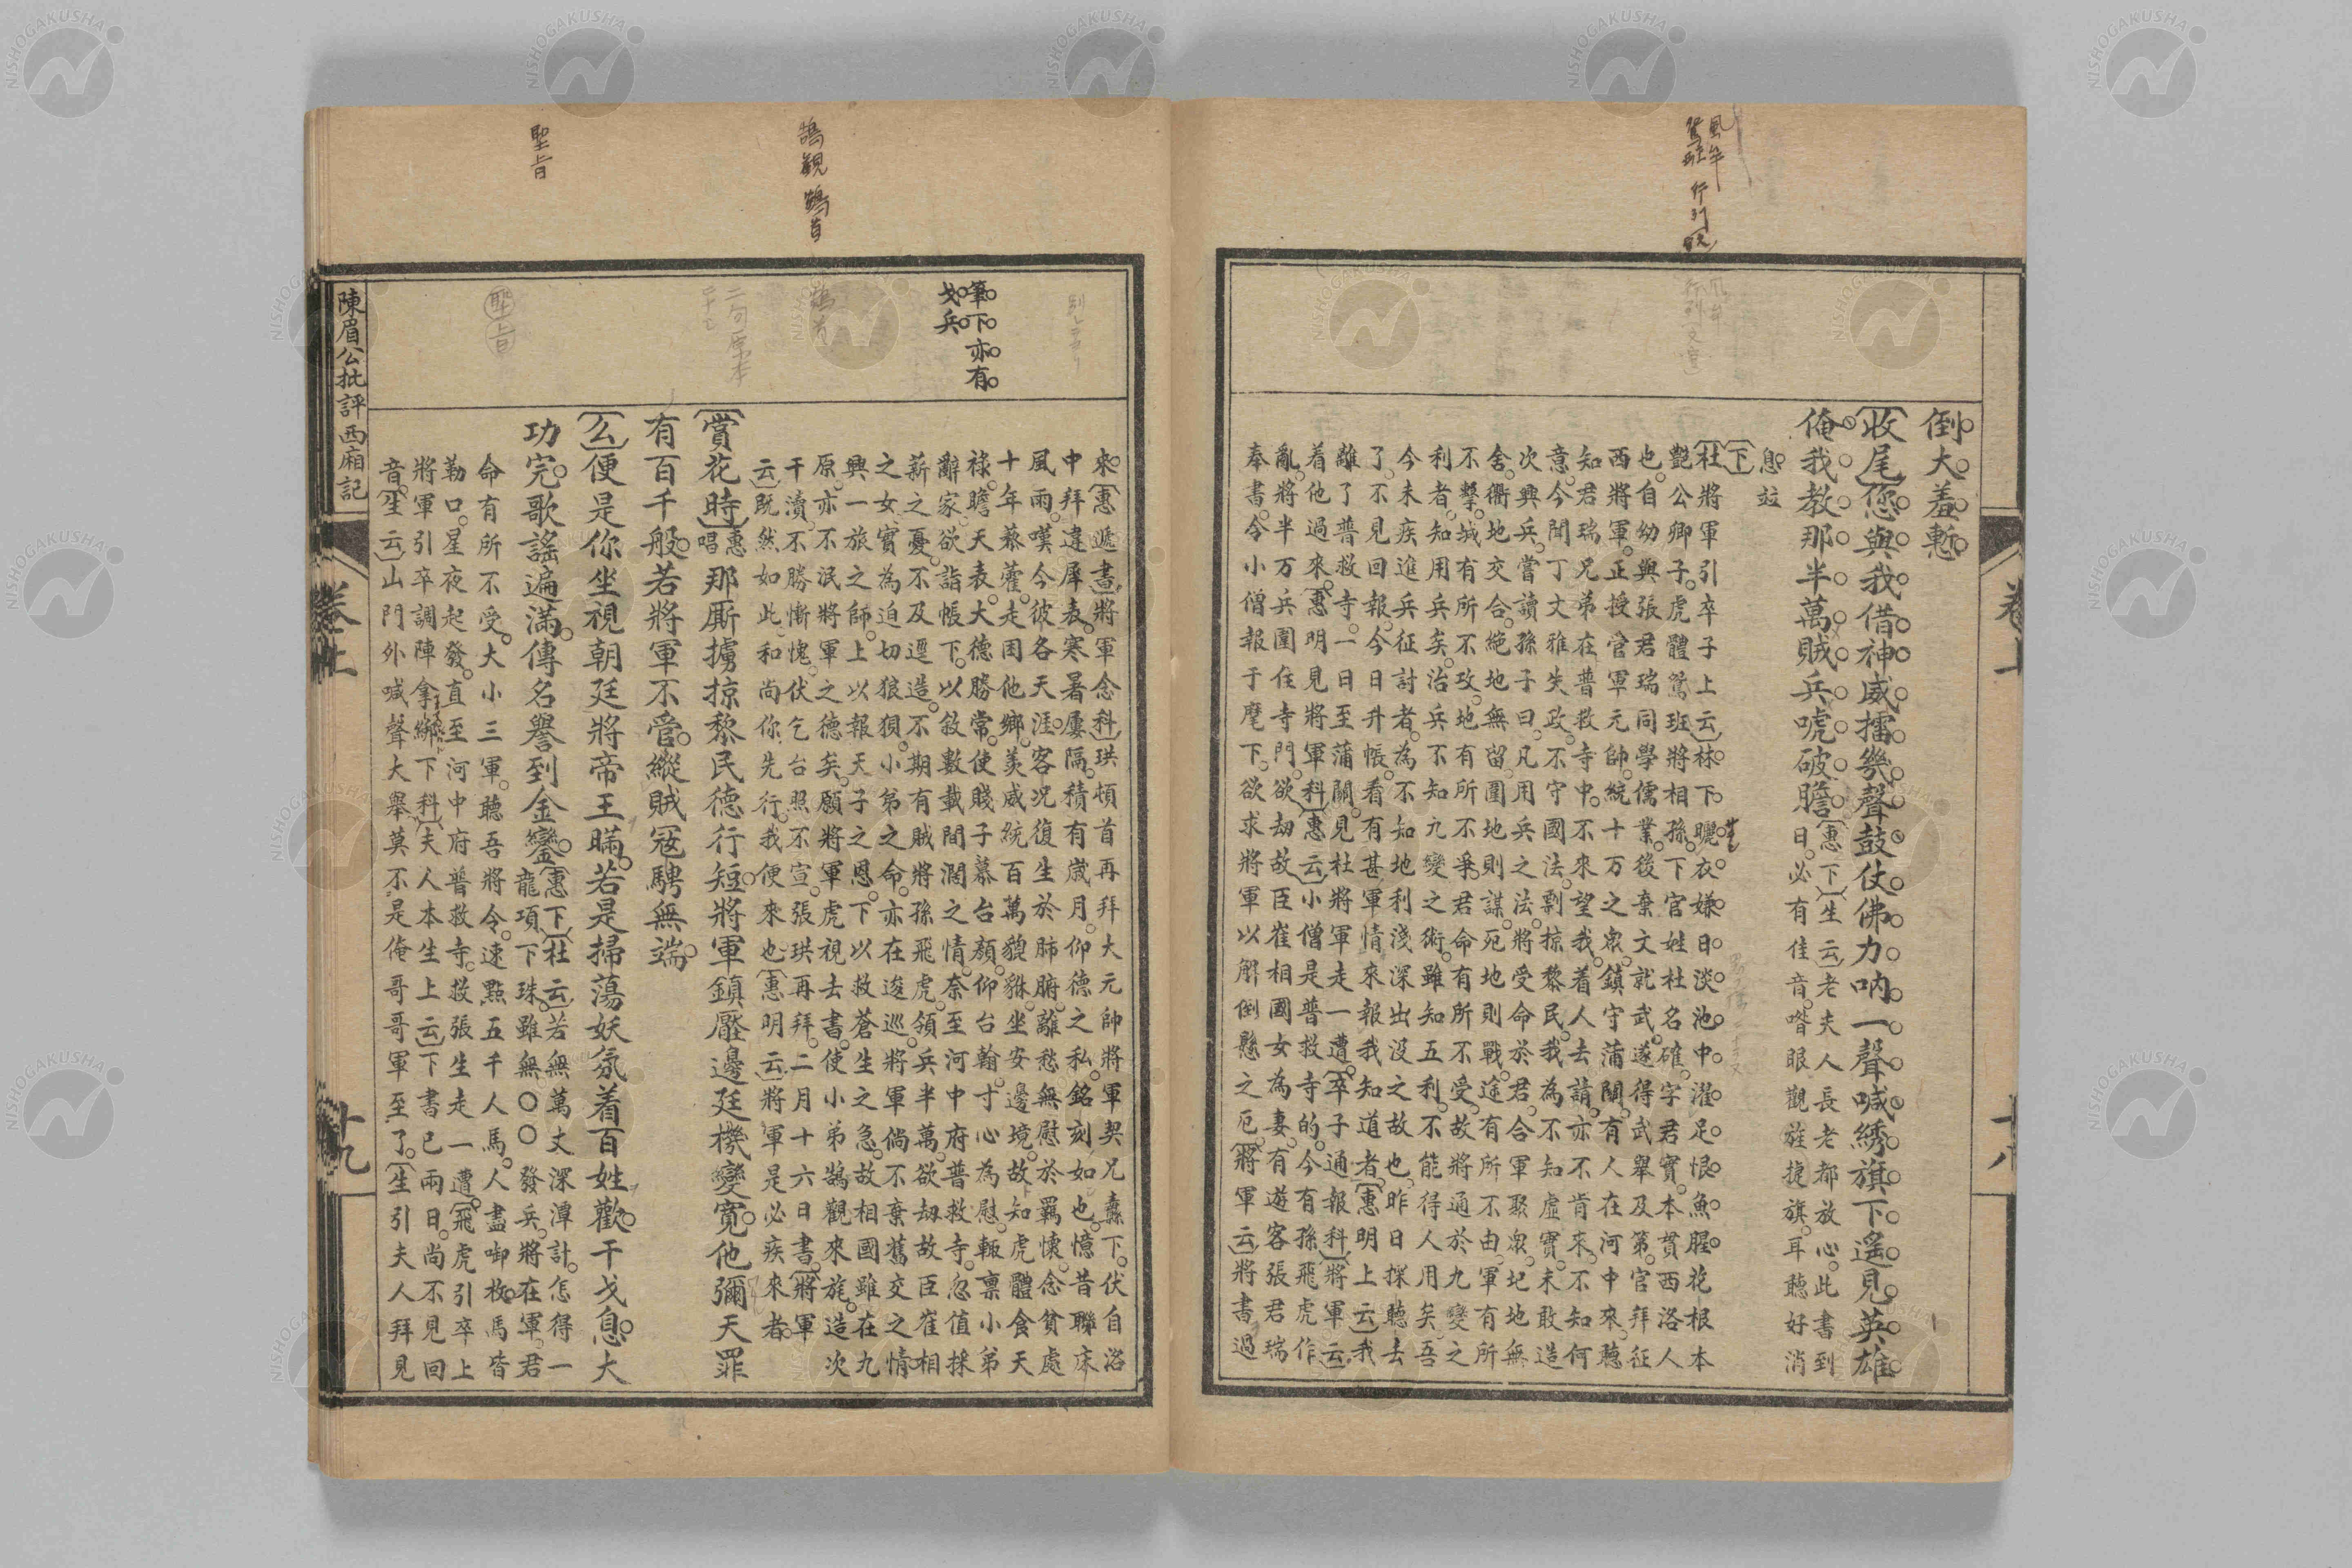 風牟
鴛班 行列
倒大羞慙
(收尾)您與我借神威擂幾聲鼓仗佛力吶一聲喊綉旗下遙見英雄
俺我教那半萬賊兵唬破膽(惠下)(生云)老夫人長老都放心此書到
日必有佳音喒眼觀旌捷旗耳聽好消
息竝
(下)
(杜將軍引卒子上云)林下曬衣嫌日淡池中濯足恨魚腥花根本
艷公卿子虎體鴛班將相孫下官姓杜名確字君實本貫西洛人
也自幼與張君瑞同學儒業後棄文就武遂得武舉及第官拜征
西將軍正授管軍元帥統十万之衆鎮守蒲關有人在河中來聽
知君瑞兄弟在普救寺中不來望我着人去請亦不肯來不知何
意今聞丁文雅失政不守國法剽掠黎民我為不知虛實未敢造
次興兵嘗讀孫子曰凡用兵之法將受命於君合軍聚衆圯地無
舍衢地交合絶地無留圍地則謀死地則戰途有所不由軍有所
不擊城有所不攻地有所不爭君命有所不受故將通於九變之
利者知用兵矣治兵不知九變之術雖知五利不能得人用矣吾
今未疾進兵征討者為不知地利淺深出没之故也昨日探聽去
了不見回報今日升帳看有甚軍情來報我知道者(惠明上云)我
離了普救寺一日至蒲關見杜將軍走一遭(卒子通報科)(將軍云)
着他過來(惠明見將軍科)(惠云)小僧是普救寺的今有孫飛虎作
亂將半万兵圍住寺門欲劫故臣崔相國女為妻有遊客張君瑞
奉書令小僧報于麾下欲求將軍以解倒懸之厄(將軍云)將書過
卷上
十八
鵠觀 鵠首
聖旨
筆下亦有
戈兵
二句原本
聖旨
來(惠遞書)(將軍念科)珙頓首再拜大元帥將軍契兄麾下伏自洛
中拜違犀表寒暑屢隔積有歲月仰德之私銘刻如也憶昔聯床
風雨嘆今彼各天涯客况復生於肺腑離愁無慰於羈懷念貧處
十年藜藿走困他鄉羡威統百萬貔貅坐安邊境故知虎體食天
祿瞻天表大德勝常使賤子慕台顏仰台翰寸心為慰輒禀小弟
辭家欲詣帳下以敘數載間濶之情奈至河中府普救寺忽值採
薪之憂不及逕造不期有賊將孫飛虎領兵半萬欲劫故臣崔相
之女實為迫切狼狽小弟之命亦在逡巡將軍倘不棄舊交之情
興一旅之師上以報天子之恩下以救蒼生之急故相國雖在九
原亦不泯將軍之德矣願將軍虎視去書使小弟鵠觀來旄造次
干瀆不勝慚愧伏乞台照不宣張珙再拜二月十六日書(將軍
云)既然如此和尚你先行我便來也(惠明云)將軍是必疾來者
(賞花時)(惠唱)那厮擄掠黎民德行短將軍鎮壓邊廷機變寬他彌天罪
有百千般若將軍不管縱賊宼騁無端
(么)便是你坐視朝廷將帝王瞞若是掃蕩妖氛着百姓歡干戈息大
功完歌謠遍滿傳名譽到金鑾(惠下)(杜云)若無萬丈深潭計怎得一
龍項下珠雖無〇〇發兵將在軍君
命有所不受大小三軍聽吾將令速點五千人馬人盡啣枚馬皆
勒口星夜起發直至河中府普救寺救張生走一遭(飛虎引卒上
將軍引卒調陣拿綁下科)(夫人本生上云)下書已兩日尚不見回
音(生云)山門外喊聲大舉莫不是俺哥哥軍至了(生引夫人拜見
陳眉公批評西廂記
卷上
十九
NISHOGAKUSHA